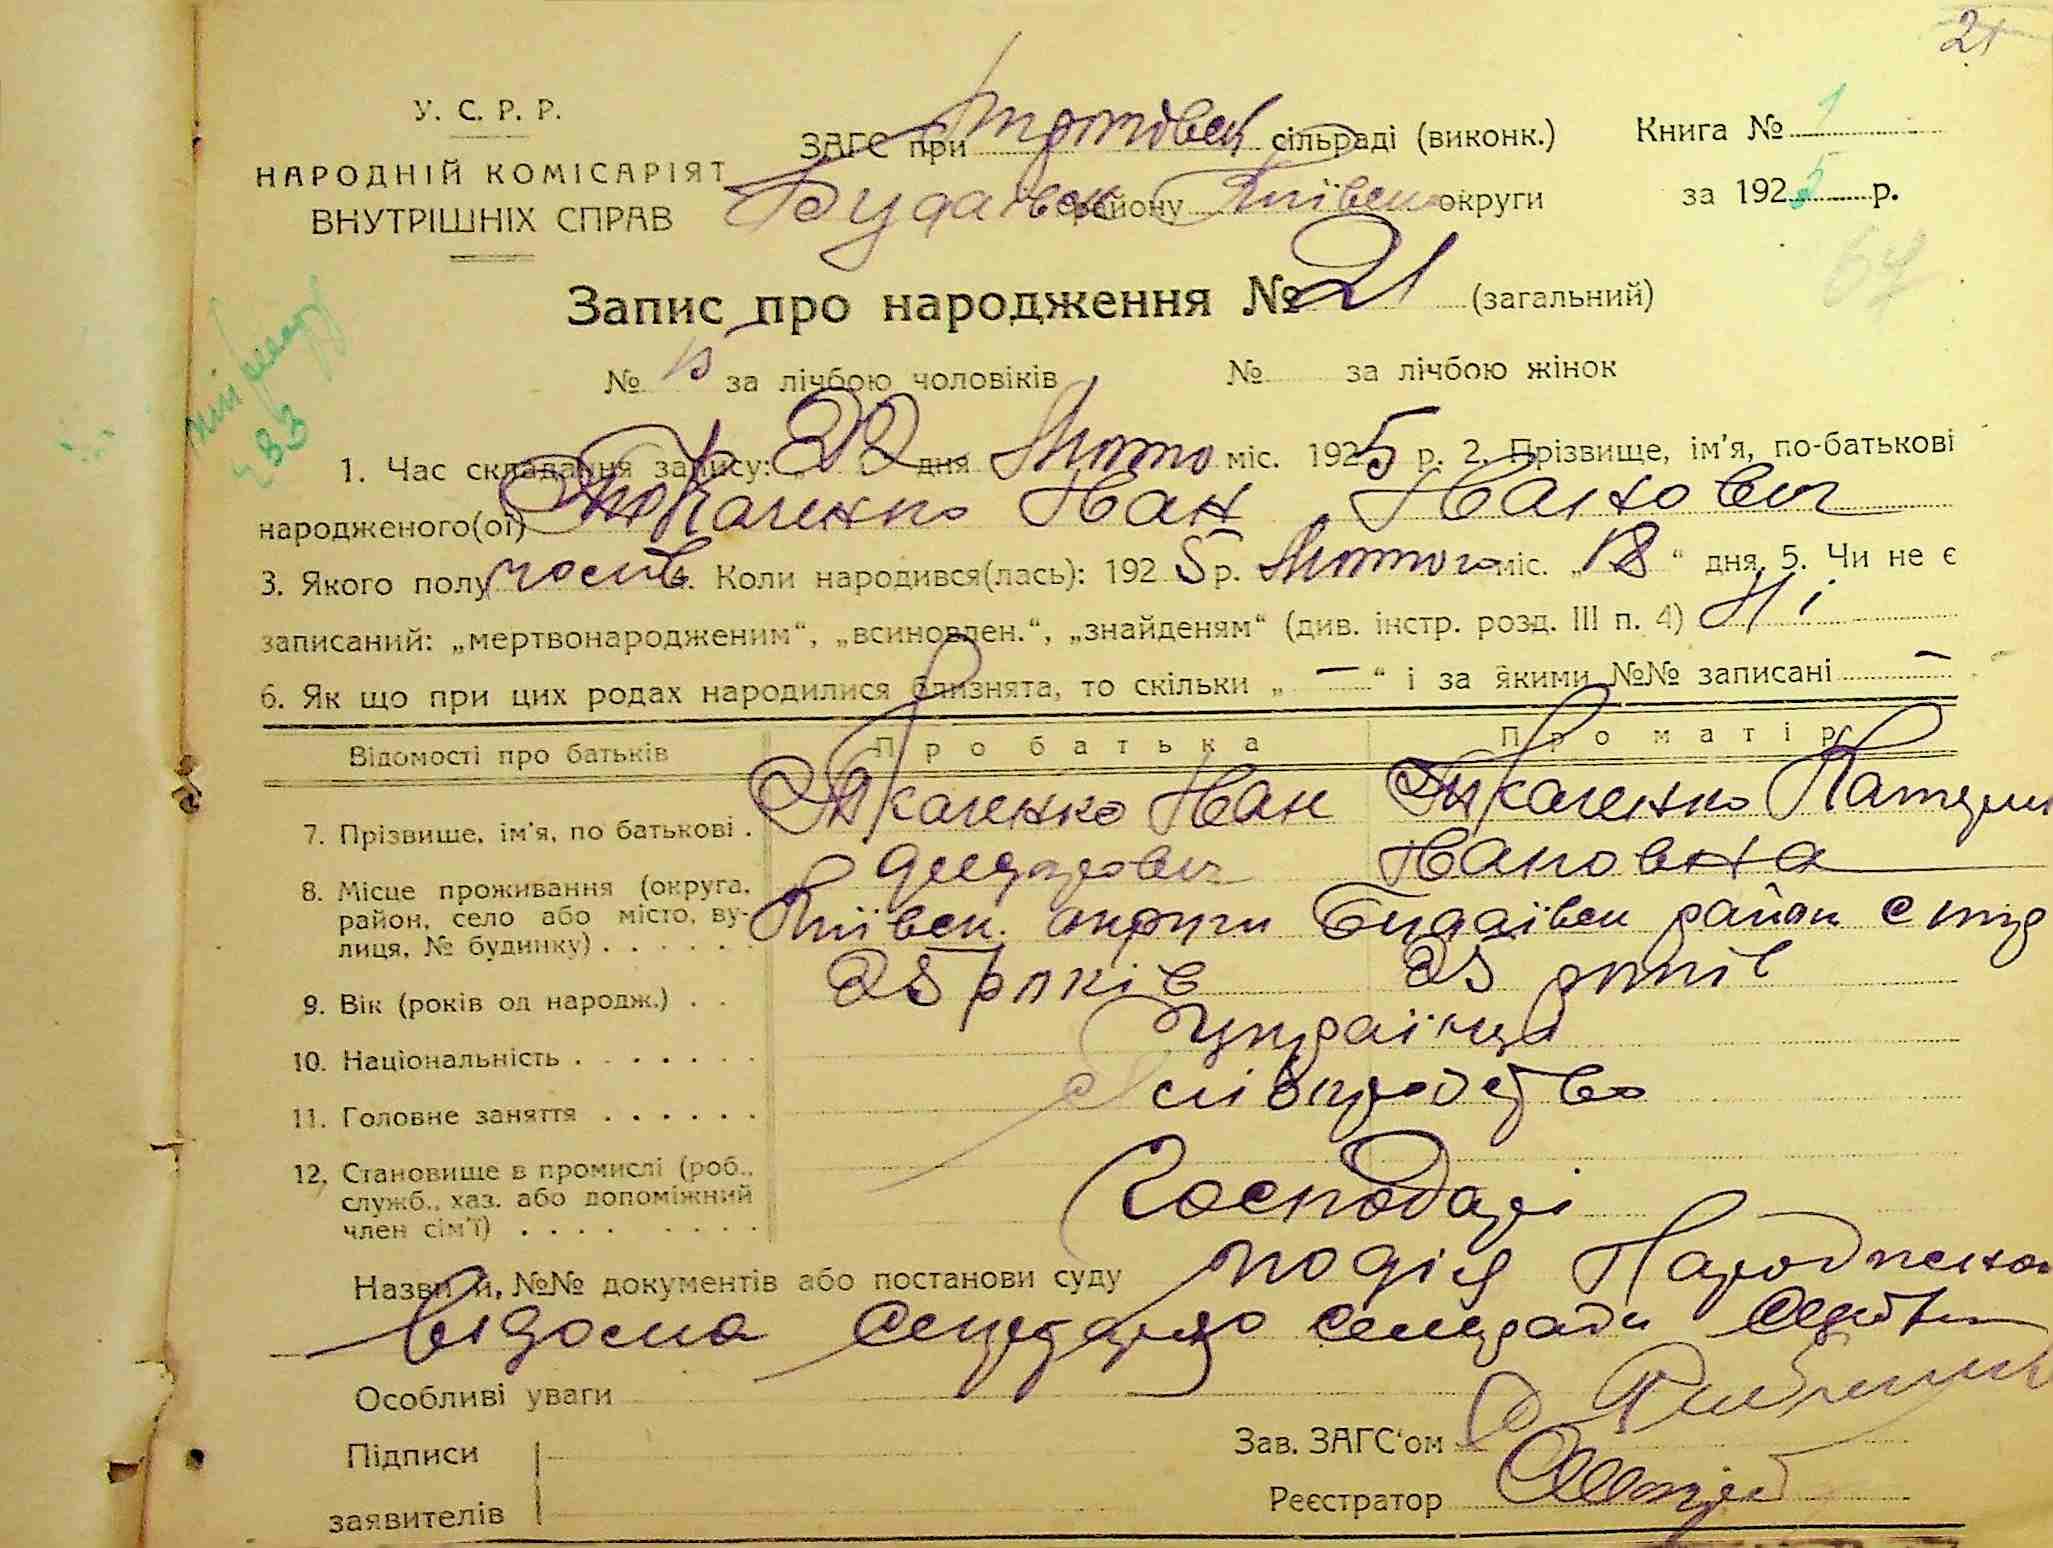 21
У. С. Р. Р.
НАРОДНІЙ КОМІСАРІЯТ
ВНУТРІШНІХ СПРАВ
ЗАГС при сільраді (виконк.) Книга № 1
Будаївськ району Київськ округи за 1925 р.
67
Запис про народження № 21 (загальний)
№ за лічбою чоловіків № за лічбою жінок
483
1. Час складання запису: „22 дня Лютого міс. 1925 р. 2. Прізвище, ім'я, по-батькові
народженого(ої) Ткаченко Іван Іванович
3. Якого полу чолов. Коли народився(лась): 1925 р. Лютого міс. „18“ дня. 5. Чи не є
записаний: „мертвонародженим“, „всиновлен.“, „знайденям“ (див. інстр. розд. III п. 4) Ні
6. Як що при цих родах народилися близнята, то скільки „ — “ і за якими №№ записані —
Відомості про батьків Про батька Про матір
7. Прізвище, ім'я, по батькові . Ткаченко Іван Ткаченко Катерин
Івановна
8. Місце проживання (округа, район, село або місто, вулиця, № будинку) . . . . . . Київськ. округи Будаївськ район с
9. Вік (років од народж.) . . 25 років 25 років
10. Національність . . . . . . . українці
11. Головне заняття . . . . . .
12. Становище в промислі (роб., служб., хаз. або допоміжний член сім'ї) . . . . . . . . . Господарі
Назви й, №№ документів або постанови суду подія Народження
відома секретарю сельради
Особливі уваги
Підписи
заявителів
Зав. ЗАГС'ом
Реєстратор